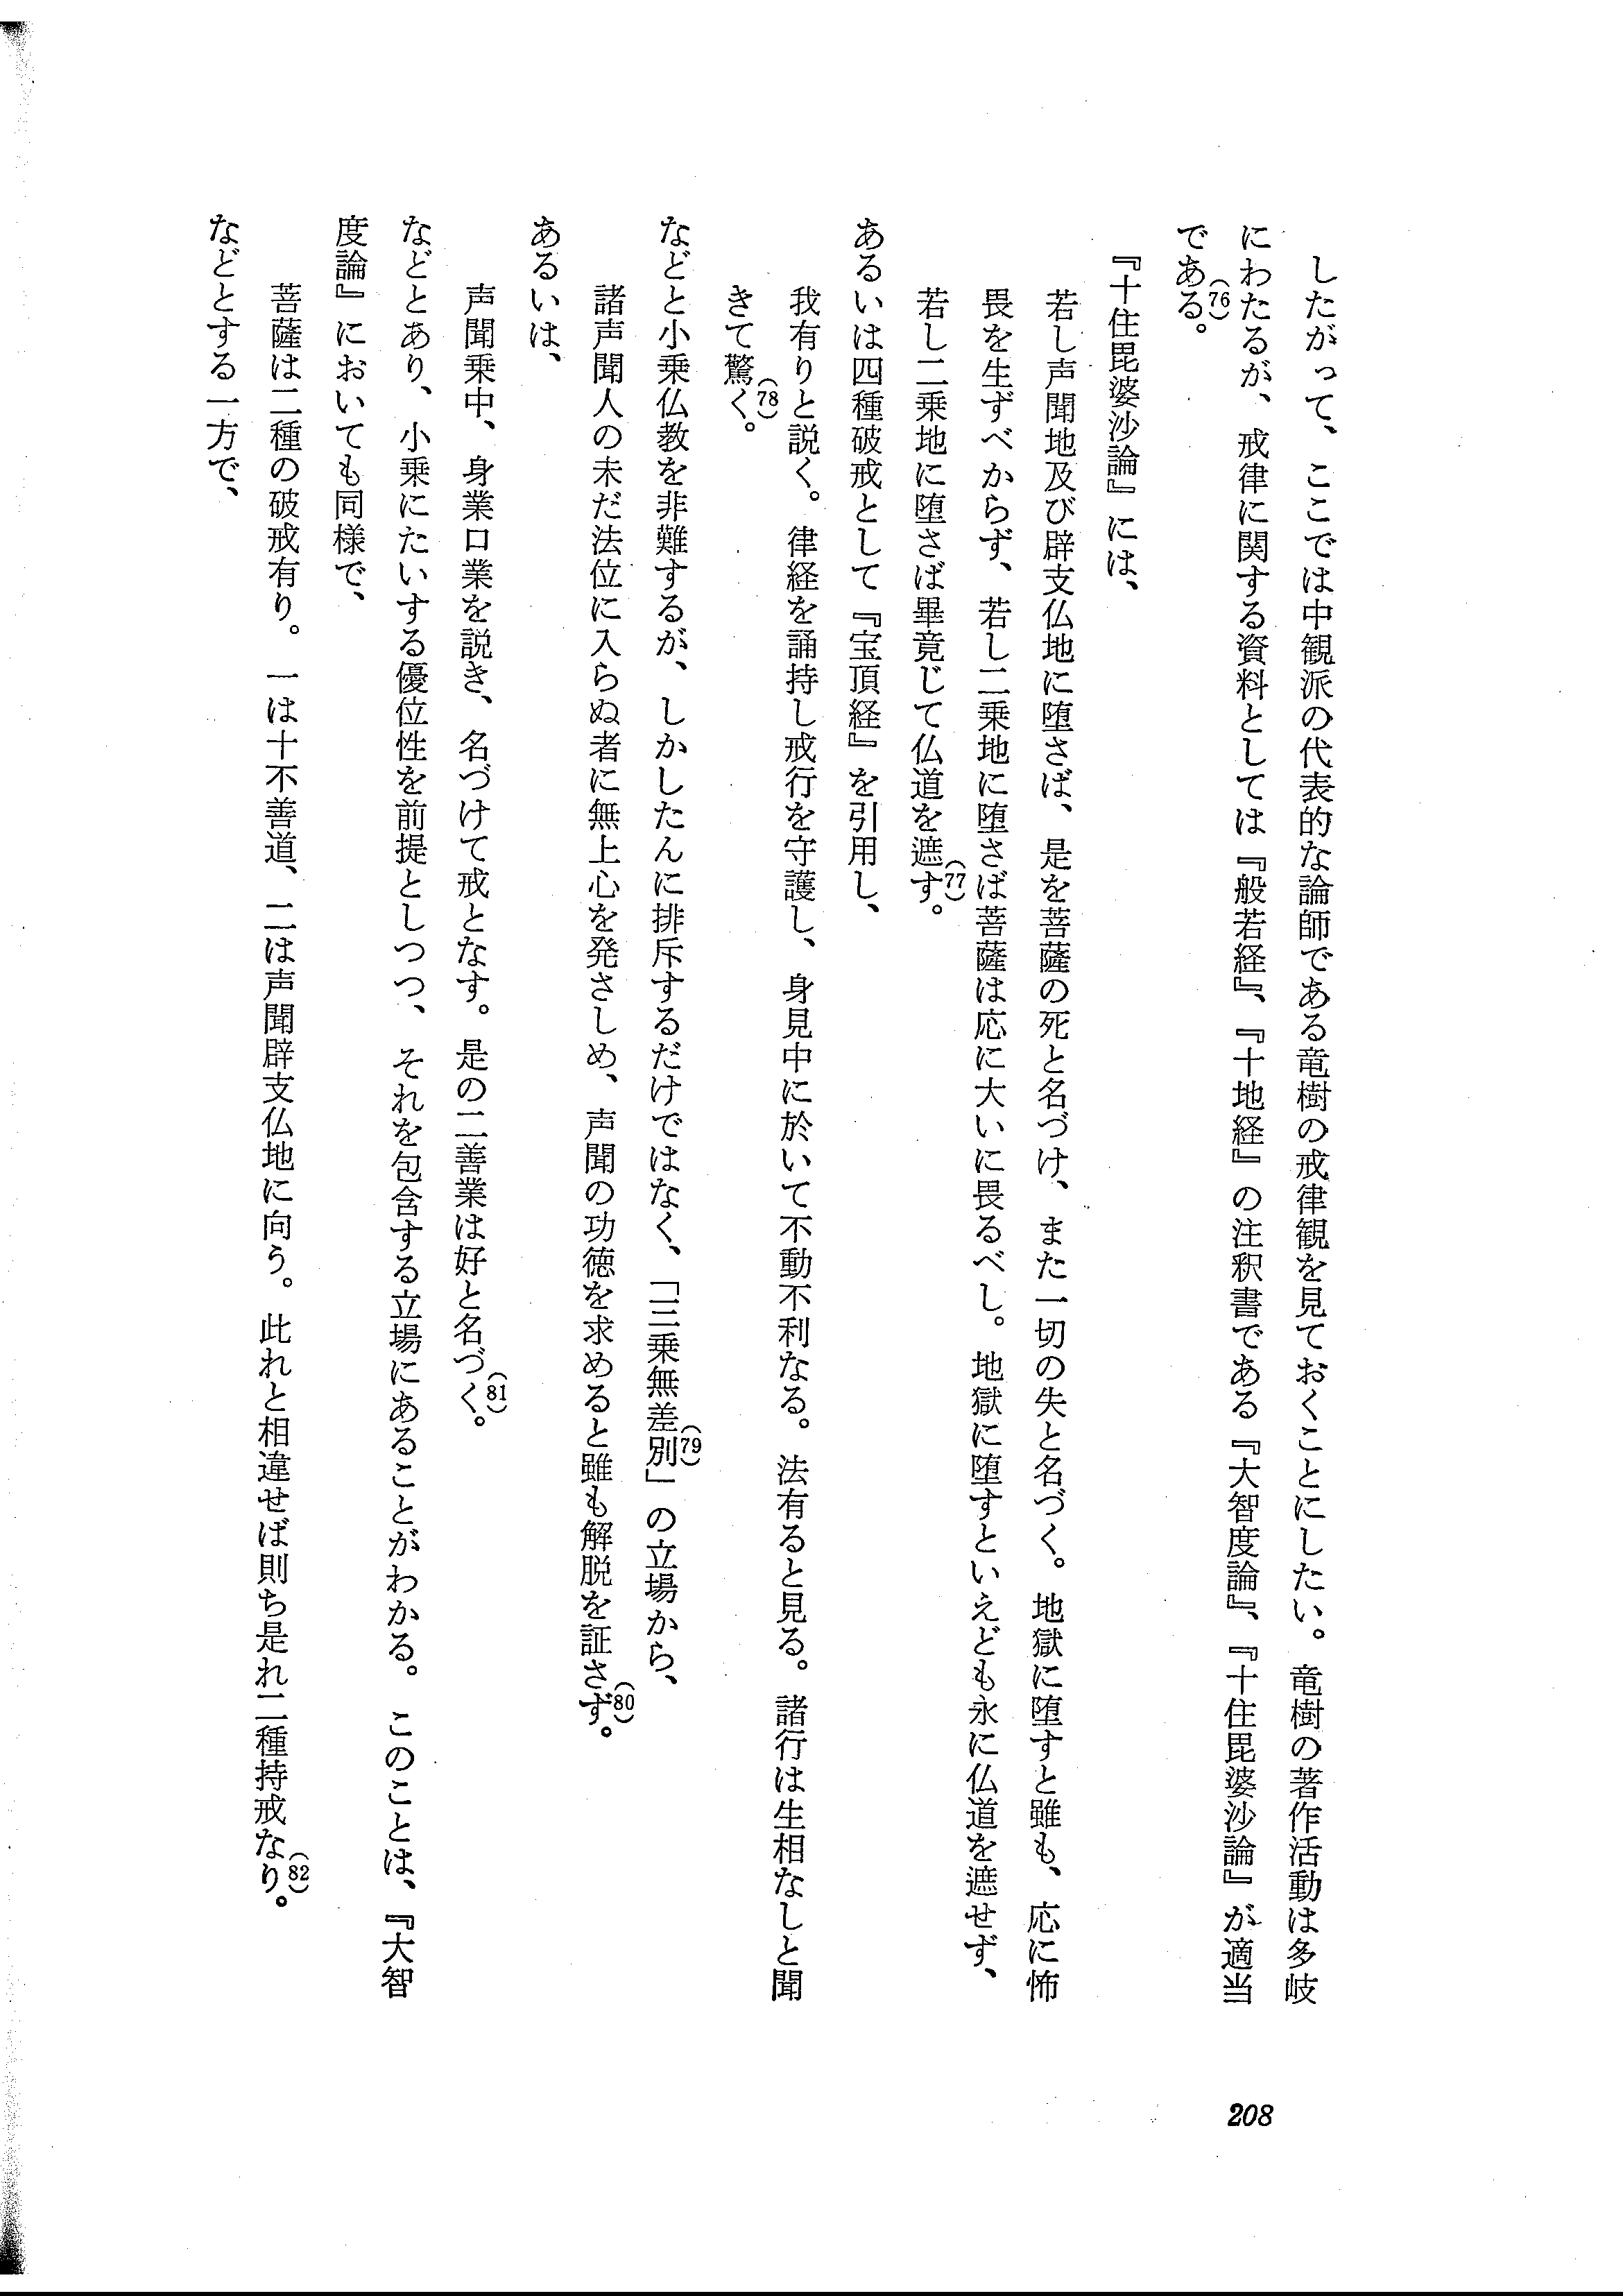 したがって、ここでは中観派の代表的な論師である竜樹の戒律観を見ておくことにしたい。竜樹の著作活動は多岐
にわたるが、戒律に関する資料としては『般若経』、『十地経』の注釈書である『大智度論』、『十住毘婆沙論』が適当
である。(76)
『十住毘婆沙論』には、
若し声聞地及び辟支仏地に堕さば、是を菩薩の死と名づけ、また一切の失と名づく。地獄に堕すと雖も、応に怖
畏を生ずべからず、若し二乗地に堕さば菩薩は応に大いに畏るべし。地獄に堕すといえども永に仏道を遮せず、
若し二乗地に堕さば畢竟じて仏道を遮す。(77)
あるいは四種破戒として『宝頂経』を引用し、
我有りと説く。律経を誦持し戒行を守護し、身見中に於いて不動不利なる。法有ると見る。諸行は生相なしと聞
きて驚く。(78)
などと小乗仏教を非難するが、しかしたんに排斥するだけではなく、「三乗無差別」(79)の立場から、
諸声聞人の未だ法位に入らぬ者に無上心を発さしめ、声聞の功徳を求めると雖も解脱を証さず。(80)
あるいは、
声聞乗中、身業口業を説き、名づけて戒となす。是の二善業は好と名づく。(81)
などとあり、小乗にたいする優位性を前提としつつ、それを包含する立場にあることがわかる。このことは、『大智
度論』においても同様で、
菩薩は二種の破戒有り。一は十不善道、二は声聞辟支仏地に向う。此れと相違せば則ち是れ二種持戒なり。(82)
などとする一方で、
208